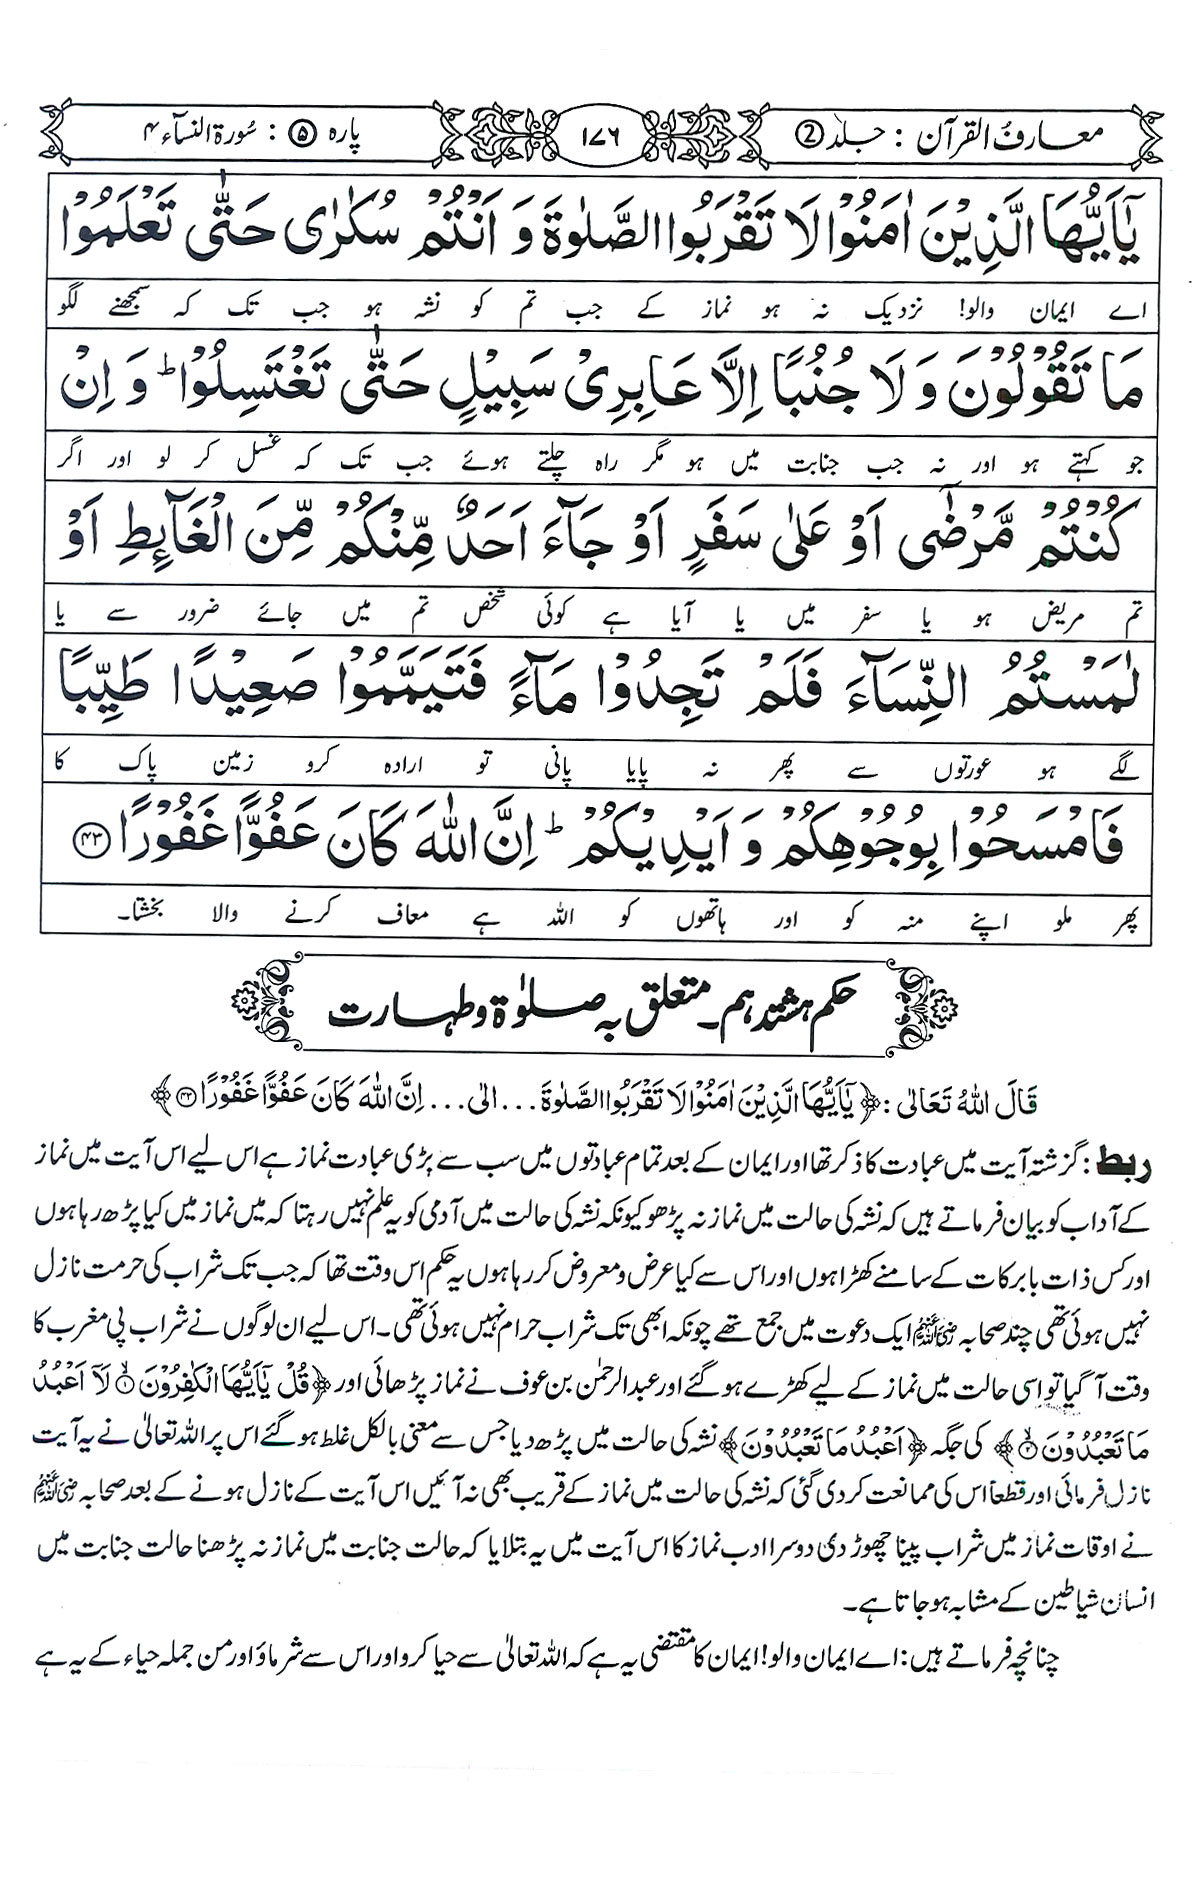 معارف القرآن : جلد ②
۱۷۶
پارہ ⑤ : سُورۃ النسآء ۴
يٰٓاَيُّهَا الَّذِيْنَ اٰمَنُوْا لَا تَقْرَبُوا الصَّلٰوةَ وَ اَنْتُمْ سُكٰرٰى حَتّٰى تَعْلَمُوْا
اے ایمان والو! نزدیک نہ ہو نماز کے جب تم کو نشہ ہو جب تک کہ سمجھنے لگو
مَا تَقُوْلُوْنَ وَ لَا جُنُبًا اِلَّا عَابِرِيْ سَبِيْلٍ حَتّٰى تَغْتَسِلُوْا ؕ وَ اِنْ
جو کہتے ہو اور نہ جب جنابت میں ہو مگر راہ چلتے ہوئے جب تک کہ غسل کر لو اور اگر
كُنْتُمْ مَّرْضٰٓى اَوْ عَلٰى سَفَرٍ اَوْ جَآءَ اَحَدٌ مِّنْكُمْ مِّنَ الْغَآىِٕطِ اَوْ
تم مریض ہو یا سفر میں یا آیا ہے کوئی شخص تم میں جائے ضرور سے یا
لٰمَسْتُمُ النِّسَآءَ فَلَمْ تَجِدُوْا مَآءً فَتَيَمَّمُوْا صَعِيْدًا طَيِّبًا
لگے ہو عورتوں سے پھر نہ پایا پانی تو ارادہ کرو زمین پاک کا
فَامْسَحُوْا بِوُجُوْهِكُمْ وَ اَيْدِيْكُمْ ؕ اِنَّ اللّٰهَ كَانَ عَفُوًّا غَفُوْرًا ﴿۴۳﴾
پھر ملو اپنے منہ کو اور ہاتھوں کو اللہ ہے معاف کرنے والا بخشتا۔
حکم ہشتدہم۔ متعلق بہ صلوٰۃ و طہارت
قَالَ اللّٰهُ تَعَالٰى : ﴿يٰٓاَيُّهَا الَّذِيْنَ اٰمَنُوْا لَا تَقْرَبُوا الصَّلٰوةَ ... الى ... اِنَّ اللّٰهَ كَانَ عَفُوًّا غَفُوْرًا ۴۳﴾
ربط : گزشتہ آیت میں عبادت کا ذکر تھا اور ایمان کے بعد تمام عبادتوں میں سب سے بڑی عبادت نماز ہے اس لیے اس آیت میں نماز
کے آداب کو بیان فرماتے ہیں کہ نشہ کی حالت میں نماز نہ پڑھو کیونکہ نشہ کی حالت میں آدمی کو یہ علم نہیں رہتا کہ میں نماز میں کیا پڑھ رہا ہوں
اور کس ذات بابرکات کے سامنے کھڑا ہوں اور اس سے کیا عرض و معروض کر رہا ہوں یہ حکم اس وقت تھا کہ جب تک شراب کی حرمت نازل
نہیں ہوئی تھی چند صحابہ رضی اللہ عنہم ایک دعوت میں جمع تھے چونکہ ابھی تک شراب حرام نہیں ہوئی تھی۔ اس لیے ان لوگوں نے شراب پی مغرب کا
وقت آ گیا تو اسی حالت میں نماز کے لیے کھڑے ہو گئے اور عبدالرحمٰن بن عوف نے نماز پڑھائی اور ﴿قُلْ يٰٓاَيُّهَا الْكٰفِرُوْنَ ۱ لَآ اَعْبُدُ
مَا تَعْبُدُوْنَ ۲﴾ کی جگہ ﴿اَعْبُدُ مَا تَعْبُدُوْنَ﴾ نشہ کی حالت میں پڑھ دیا جس سے معنی بالکل غلط ہو گئے اس پر اللہ تعالیٰ نے یہ آیت
نازل فرمائی اور قطعاً اس کی ممانعت کر دی گئی کہ نشہ کی حالت میں نماز کے قریب بھی نہ آئیں اس آیت کے نازل ہونے کے بعد صحابہ رضی اللہ عنہم
نے اوقات نماز میں شراب پینا چھوڑ دی دوسرا ادب نماز کا اس آیت میں یہ بتلایا کہ حالت جنابت میں نماز نہ پڑھنا حالت جنابت میں
انسان شیاطین کے مشابہ ہو جاتا ہے۔
چنانچہ فرماتے ہیں: اے ایمان والو! ایمان کا مقتضی یہ ہے کہ اللہ تعالیٰ سے حیا کرو اور اس سے شرماؤ اور من جملہ حیاء کے یہ ہے